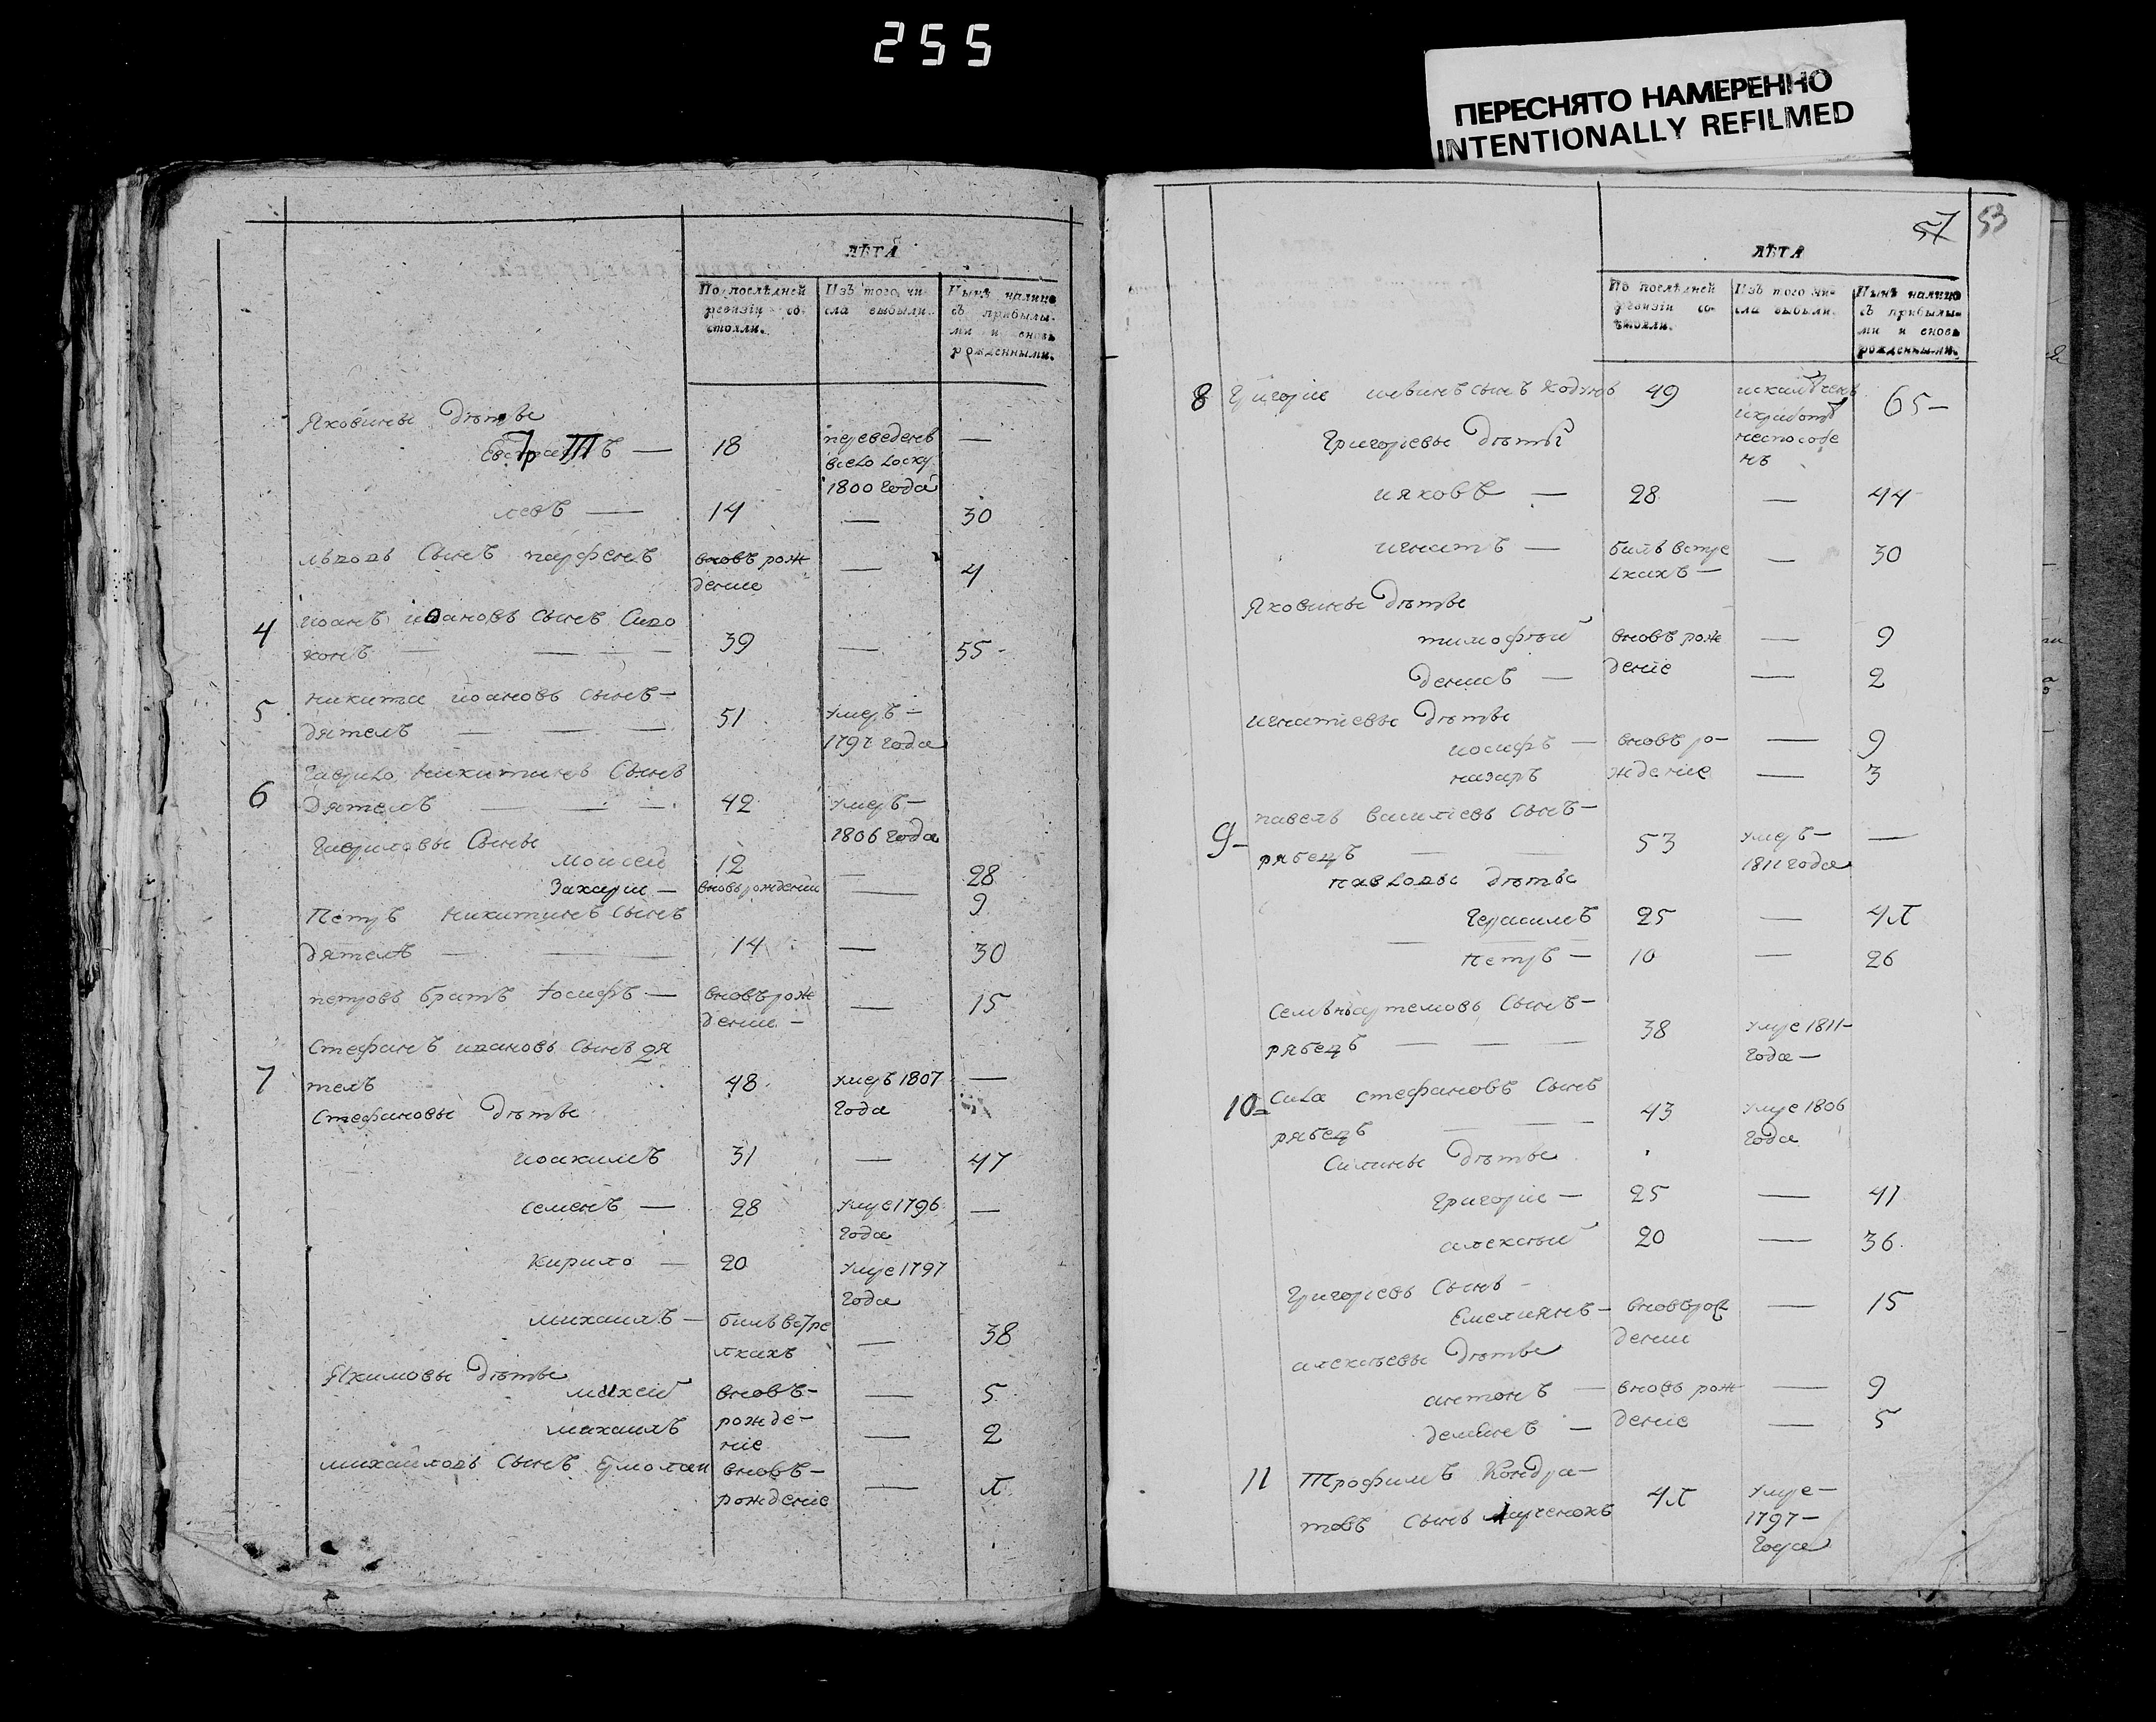 255
ПЕРЕСНЯТО НАМЕРЕННО
INTENTIONALLY REFILMED
ЛѢТА
По послѣдней ревизіи состояли.
Изъ того числа выбыли.
Нынѣ налицо съ прибылыми и вновь рожденными.
Яковины дѣты
18 переведенъ —
1800 года
левъ — 14 — 30
Сынъ парфенъ вновь рож
дение — 4
4 иоанъ ивановъ сынъ Сидо
39 — 55
5 никита иоановъ сынъ —
дятелъ — — — 51 умеръ —
1797 года
6 Гаврило никитинъ Сынъ
Дятелъ — — — 42 умеръ —
1806 года
Гавриловы Сыны
моисей 12 — 28
Захарии — вновь рождении — 9
Петръ никитинъ сынъ
дятелъ — — 14 — 30
петровъ братъ Иосифъ — вновъ рож
дение — — 15
7 Стефанъ ивановъ сынъ дя
телъ 48 умеръ 1807 —
Стефановы дѣты года
иоакимъ 31 — 47
семенъ — 28 умре 1796 —
года
Кирило — 20 умре 1797
года
михаилъ — билъ встре
лкахъ — 38
Якимовы дѣты
вновъ — — 5
михаилъ рожде —
ние — 2
михайловъ Сынъ Ермолаи вновъ —
рождение — л
57 53
ЛѢТА
По послѣдней ревизіи состояли.
Изъ того числа выбыли.
Нынѣ налицо съ прибылыми и вновь рожденными.
8 Григорие сынъ 49 65 —
Григориевы дѣты неспособе
нъ
ияковъ — 28 — 44
игнатъ — билъ встре
лкахъ — — 30
Яковины дѣты
тимофѣй вновъ рож — 9
денисъ — дение — 2
игнатиевы дѣты
иосифъ — вновъ ро — — 9
назаръ ждение — 3
9 — павелъ василиевъ сынъ —
рябецъ — — 53 умеръ — —
1811 года
павловы дѣты
Герасимъ 25 — 4л
петръ — 10 — 26
Семенъ артемовъ Сынъ —
рябецъ — — — 38 умре 1811 —
года —
10 Сила стефановъ Сынъ
рябецъ — — 43 умре 1806
года
Силины дѣты
Григорие — 25 — 41
алексѣй 20 — 36.
Григориевъ Сынъ —
Емелиянъ — — 15
дении
алексѣевы дѣты
антонъ — вновь рож — 9
— дение — 5
11 Трофимъ Кондра —
товъ Сынъ 4л умре —
1797 —
года